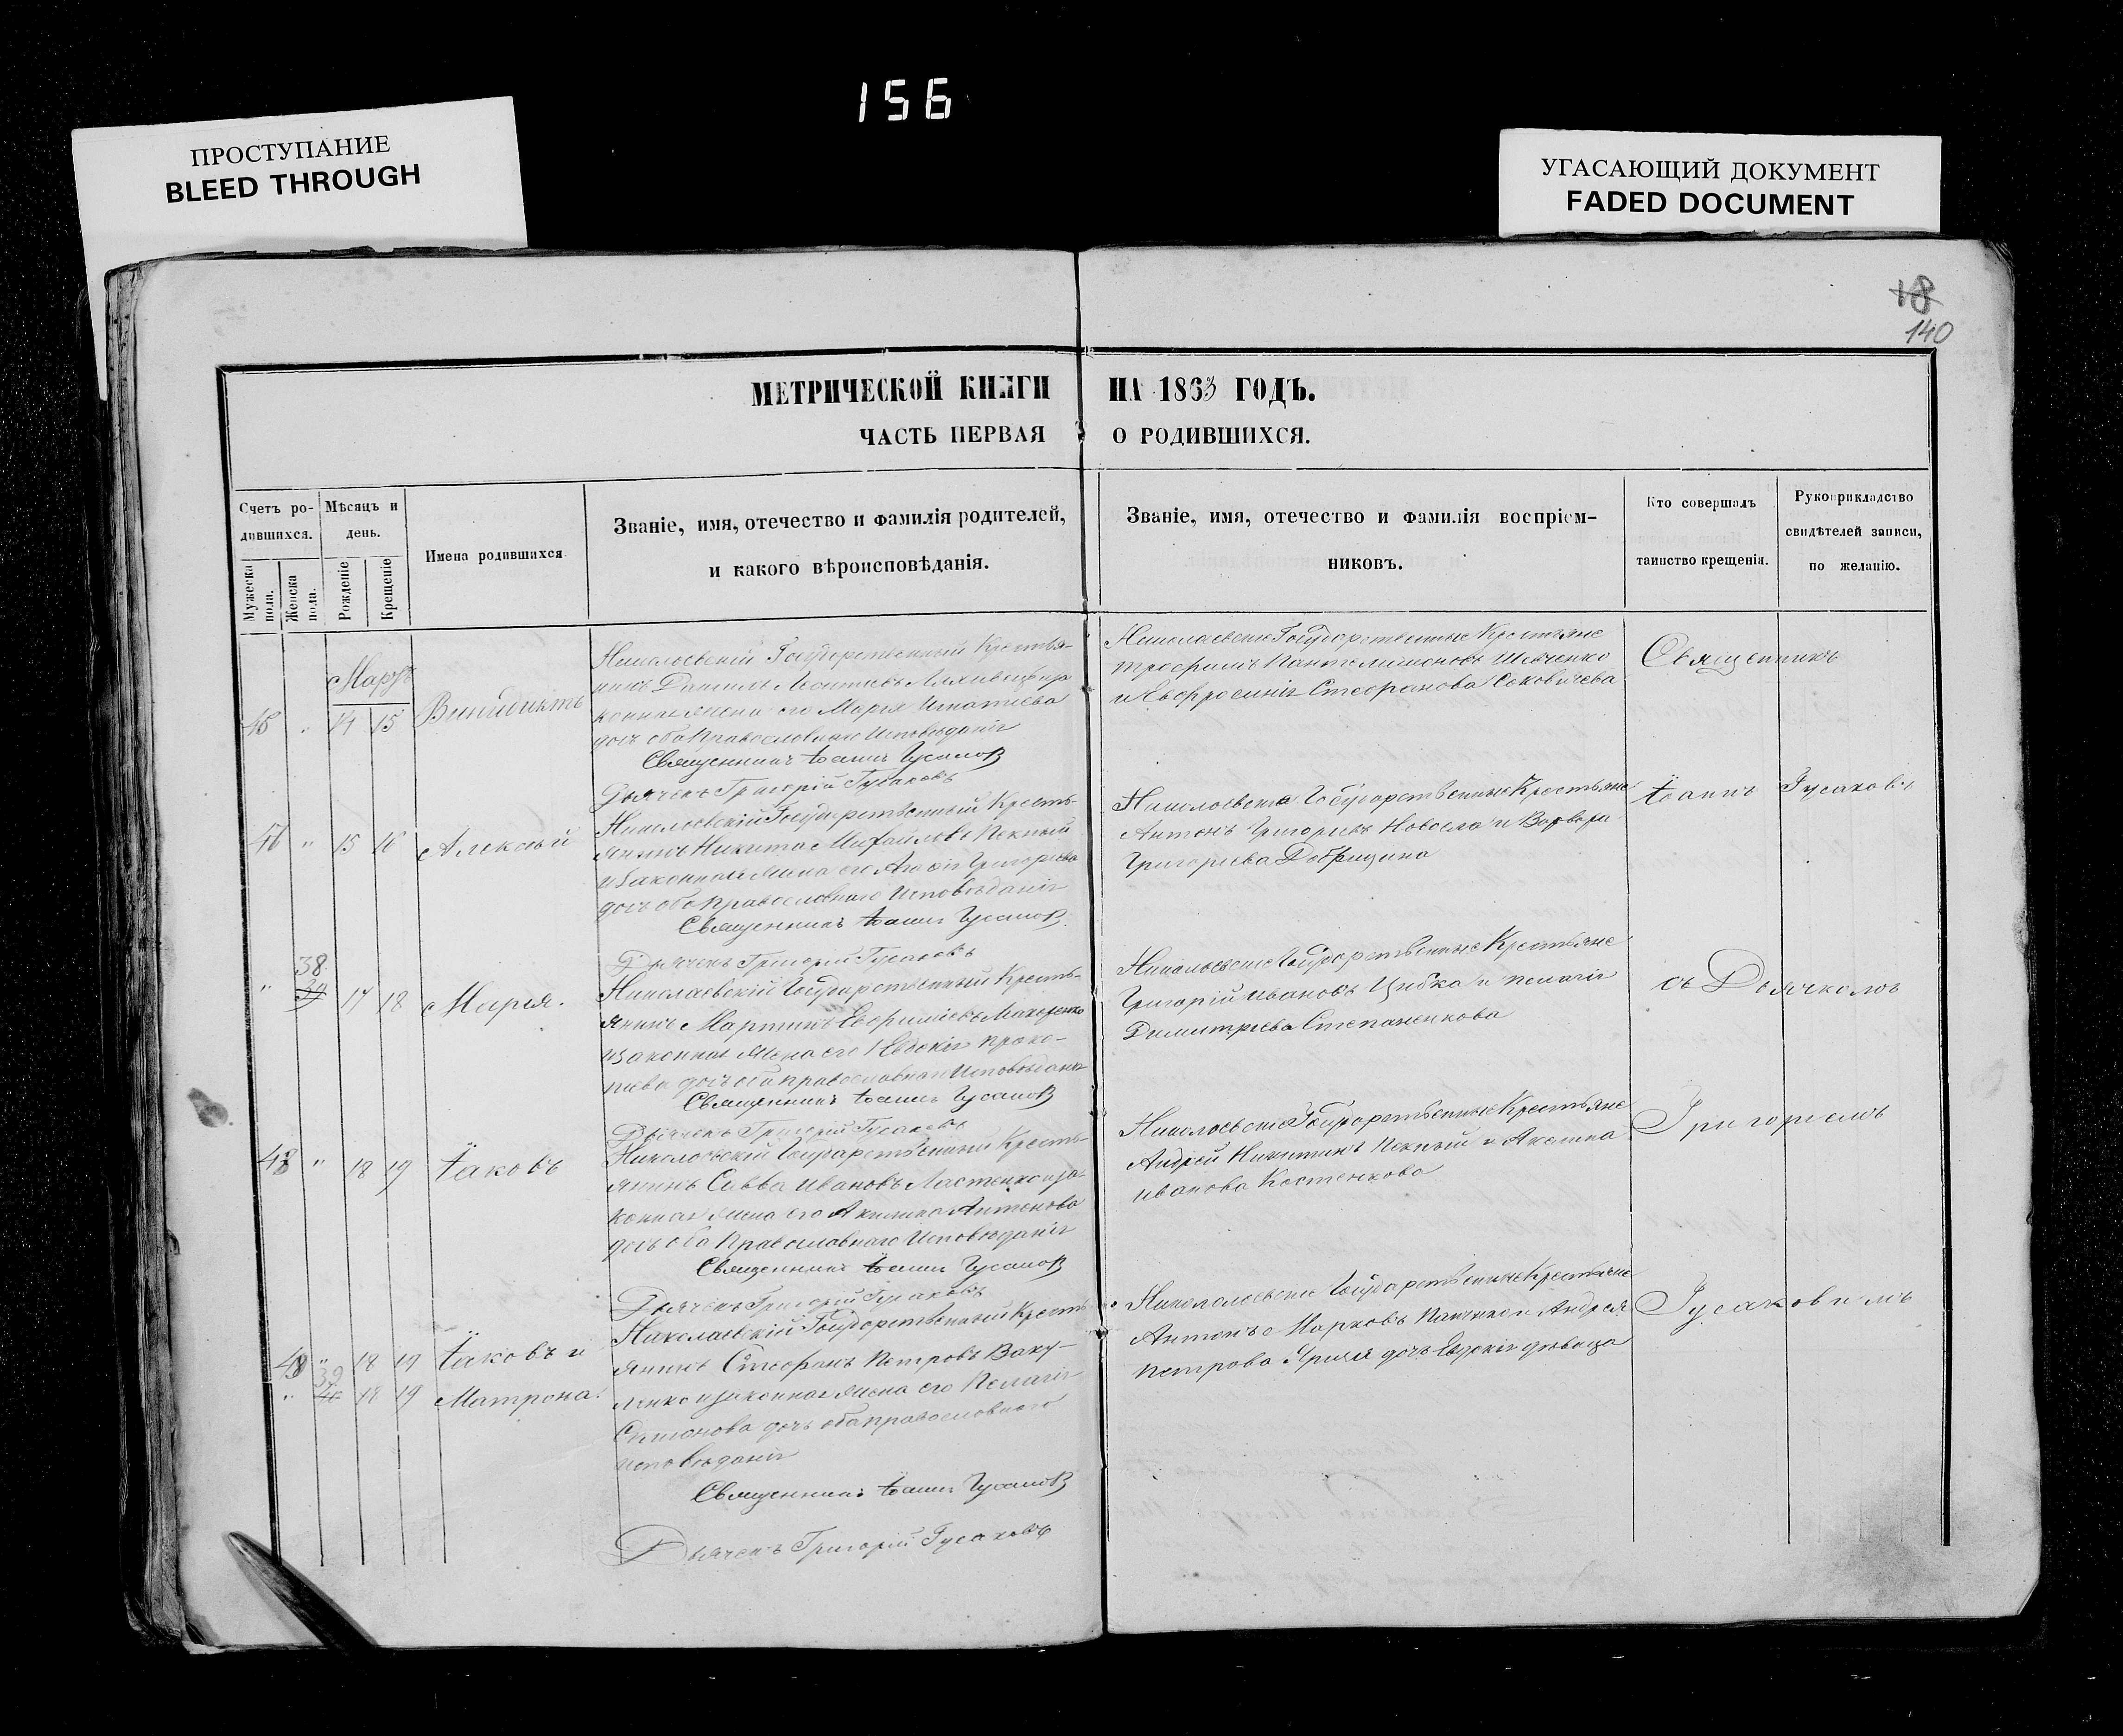 156
ПРОСТУПАНИЕ
BLEED THROUGH
УГАСАЮЩИЙ ДОКУМЕНТ
FADED DOCUMENT
18
140
МЕТРИЧЕСКОЙ КНИГИ НА 1863 ГОДЪ.
ЧАСТЬ ПЕРВАЯ О РОДИВШИХСЯ.
Счетъ ро-
дившихся.
Мужеска
пола.
Женска
пола.
Мѣсяцъ и
день.
Рожденіе
Крещеніе
Имена родившихся
Званіе, имя, отечество и фамилія родителей,
и какого вѣроисповѣданія.
Званіе, имя, отечество и фамилія воспріем-
никовъ.
Кто совершалъ
таинство крещенія.
Рукоприкладство
свидѣтелей записи,
по желанію.
Мартъ
14 15 Винидиктъ
Николаевскій Государственный Крестья-
нинъ Даніилъ
жена его Марія Игнатіева
дочь оба Православнаго Исповѣданія
Священникъ Іоаннъ Гусаков
Дьячекъ Григорій Гусаковъ
Николаевскіе Государственные Крестьяне
Трофимъ Пантелимоновъ Шевченко
и Евфросинія Стефанова
Священникъ
15 16 Алексѣй
Николаевскій Государственный Кресть-
янинъ Никита Михаиловъ Пекный
и законная жена его Григорьева
дочь оба Православнаго Исповѣданія
Священникъ Іоаннъ Гусаков
Дьячекъ Григорій Гусаковъ
Николаевскіе Государственные Крестьяне
Антонъ Григорьевъ и Варвара
Григорьева Добрицина
Іоаннъ Гусаковъ
38
17 18 Марія.
Николаевскій Государственный Кресть-
янинъ Мартинъ
и законная жена его Евдокія Проко-
піева дочь оба православнаго Исповѣданія
Священникъ Іоаннъ Гусаков
Дьячекъ Григорій Гусаковъ
Николаевскіе Государственные Крестьяне
Григорій Ивановъ Цибка и Пелагія
Димитріева Степаненкова
съ Дьячкомъ
48 18 19 Іаковъ
Николаевскій Государственный Кресть-
янинъ Савва Ивановъ Ластенко и за-
конная жена его Акилина Антонова
дочь оба Православнаго Исповѣданія
Священникъ Іоаннъ Гусаков
Дьячекъ Григорій Гусаковъ
Николаевскіе Государственные Крестьяне
Андрей Никитинъ Пекный и Акилина
Иванова Костенкова
Григоріемъ
18 19 Іаковъ и
39
18 19 Матрона
Николаевскій Государственный Кресть-
янинъ Стефанъ Петровъ Баку-
ленко и законная жена его Пелагія
Симонова дочь оба православнаго
исповѣданія
Священникъ Іоаннъ Гусаков
Дьячекъ Григорій Гусаковъ
Николаевскіе Государственные Крестьяне
Антонъ Марковъ и Андрея
Петрова дочь Евдокія дѣвица
Гусаковимъ